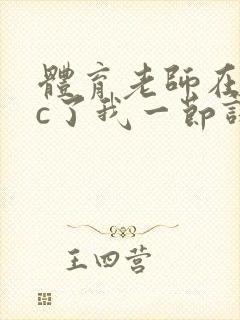 體育老師在
c了我一節
王四营